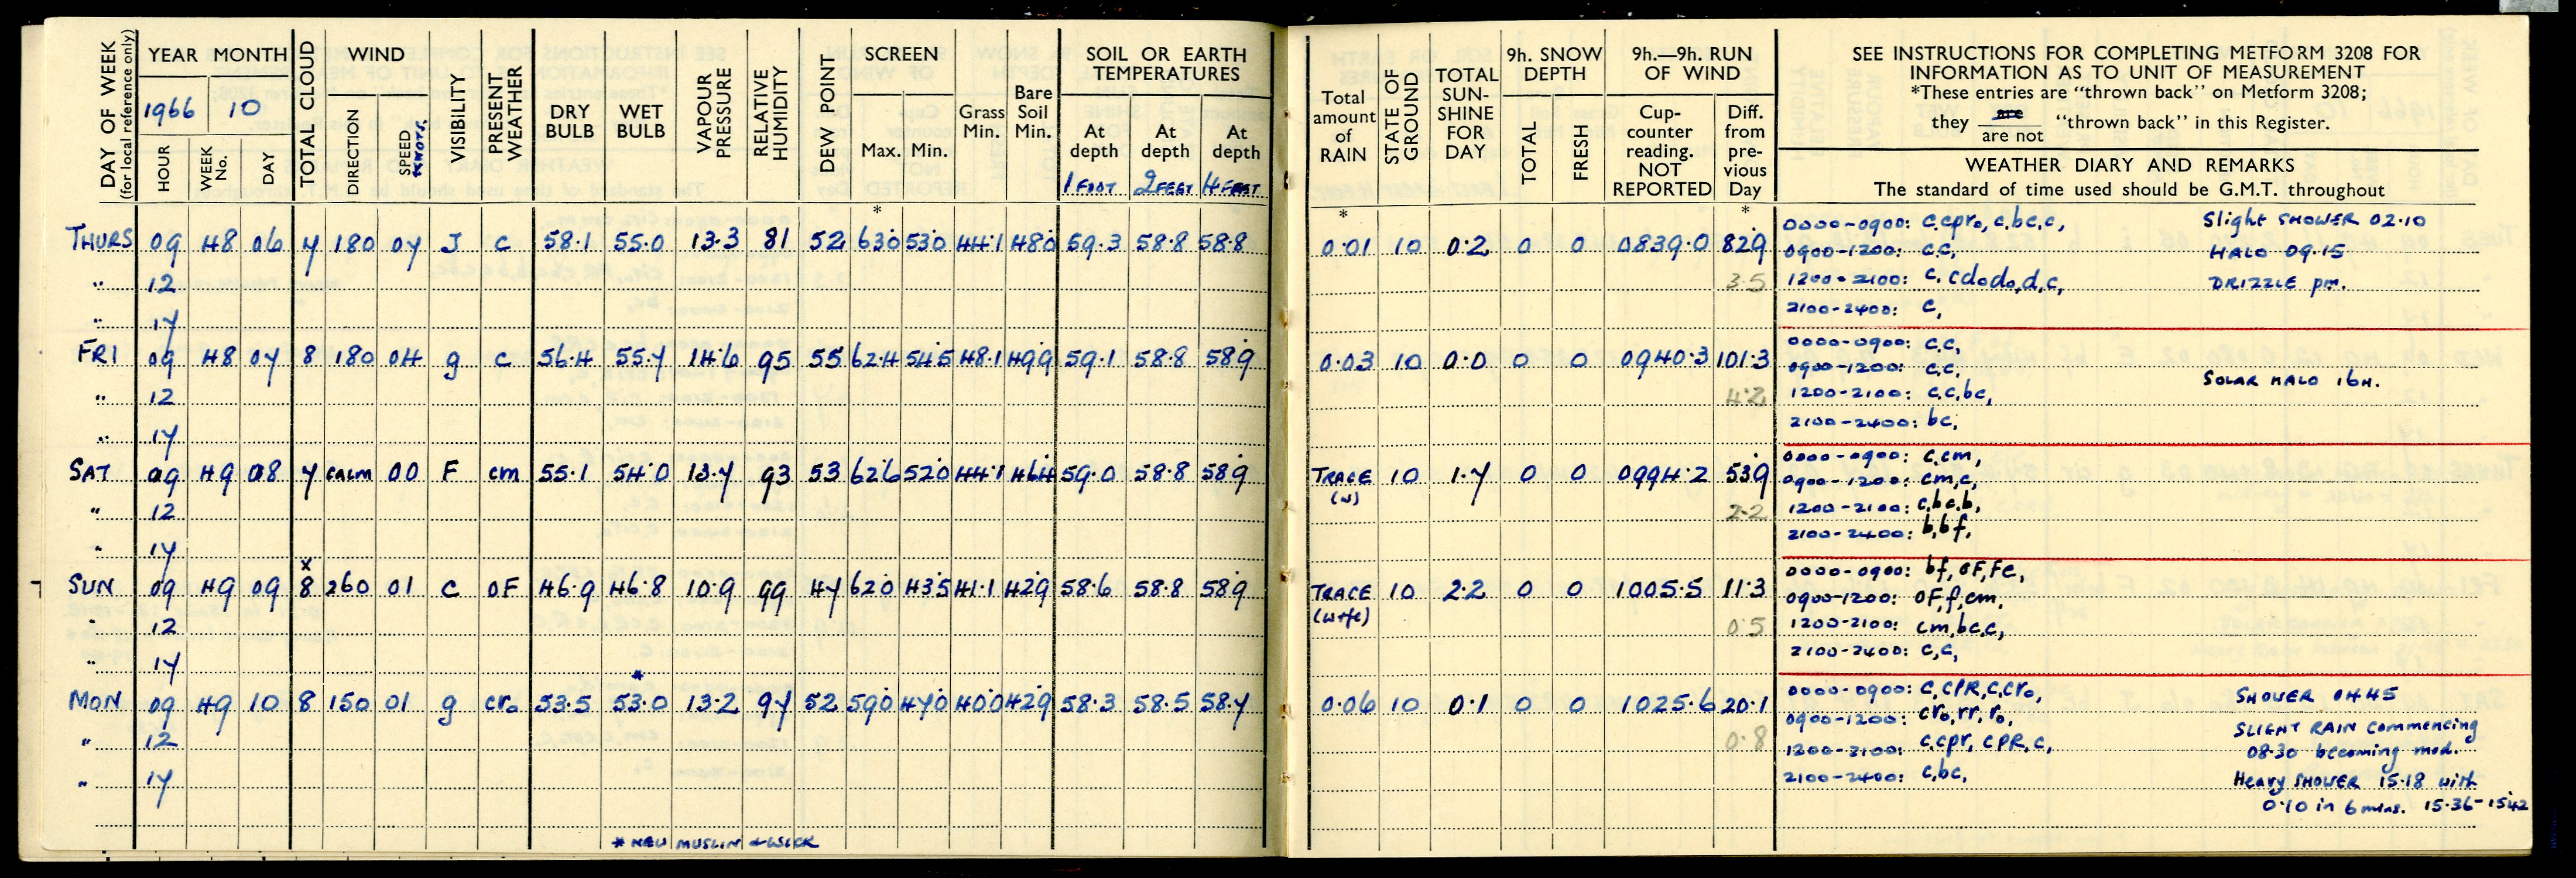 DAY OF WEEK (for local reference only)
YEAR MONTH
1966 10
HOUR WEEK No. DAY
TOTAL CLOUD
WIND
DIRECTION SPEED KNOTS.
VISIBILITY
PRESENT WEATHER
DRY BULB
WET BULB
VAPOUR PRESSURE
RELATIVE HUMIDITY
DEW POINT
SCREEN
Max. Min.
Grass Min.
Bare Soil Min.
SOIL OR EARTH TEMPERATURES
At depth 1 FOOT
At depth 2 FEET
At depth 4 FEET
*
THURS 09 48 06 7 180 07 J c 58.1 55.0 13.3 81 52 63.0 53.0 44.1 48.0 59.3 58.8 58.8
" 12
" 17
FRI 09 48 07 8 180 04 g c 56.4 55.7 14.6 95 55 62.4 54.5 48.1 49.9 59.1 58.8 58.9
" 12
" 17
SAT 09 49 08 7 CALM 00 F cm 55.1 54.0 13.7 93 53 62.6 52.0 44.1 46.4 59.0 58.8 58.9
" 12
" 17
x
SUN 09 49 09 8 260 01 C OF 46.9 46.8 10.9 99 47 62.0 43.5 41.1 42.9 58.6 58.8 58.9
" 12
" 17
*
MON 09 49 10 8 150 01 g cr₀ 53.5 53.0 13.2 97 52 59.0 47.0 40.0 42.9 58.3 58.5 58.7
" 12
" 17
* NEW MUSLIN & WICK
Total amount of RAIN
STATE OF GROUND
TOTAL SUN-SHINE FOR DAY
9h. SNOW DEPTH
TOTAL FRESH
9h.—9h. RUN OF WIND
Cup-counter reading. NOT REPORTED
Diff. from pre-vious Day
SEE INSTRUCTIONS FOR COMPLETING METFORM 3208 FOR
INFORMATION AS TO UNIT OF MEASUREMENT
*These entries are "thrown back" on Metform 3208;
they are / are not "thrown back" in this Register.
WEATHER DIARY AND REMARKS
The standard of time used should be G.M.T. throughout
* *
0.01 10 0.2 0 0 0839.0 82.9
3.5
0000-0900: c,cpr₀,c,bc,c, Slight SHOWER 02.10
0900-1200: c,c, HALO 09.15
1200-2100: c,cd₀d₀,d,c, DRIZZLE pm.
2100-2400: c,
0.03 10 0.0 0 0 0940.3 101.3
4.2
0000-0900: c,c,
0900-1200: c,c,
SOLAR HALO 16H.
1200-2100: c,c,bc,
2100-2400: bc,
TRACE (w) 10 1.7 0 0 0994.2 53.9
2.2
0000-0900: c,cm,
0900-1200: cm,c,
1200-2100: c,bc,b,
2100-2400: b,bf,
TRACE (w+fe) 10 2.2 0 0 1005.5 11.3
0.5
0000-0900: bf,OF,Fe,
0900-1200: OF,f,cm,
1200-2100: cm,bc,c,
2100-2400: c,c,
0.06 10 0.1 0 0 1025.6 20.1
0.8
0000-0900: c,cPR,c,cr₀, SHOWER 0445
0900-1200: cr₀,rr,r₀, SLIGHT RAIN commencing
08.30 becoming mod.
1200-2100: c,cpr,cPR,c,
2100-2400: c,bc, Heavy SHOWER 15.18 with
0.10 in 6 mins. 15.36-15.42